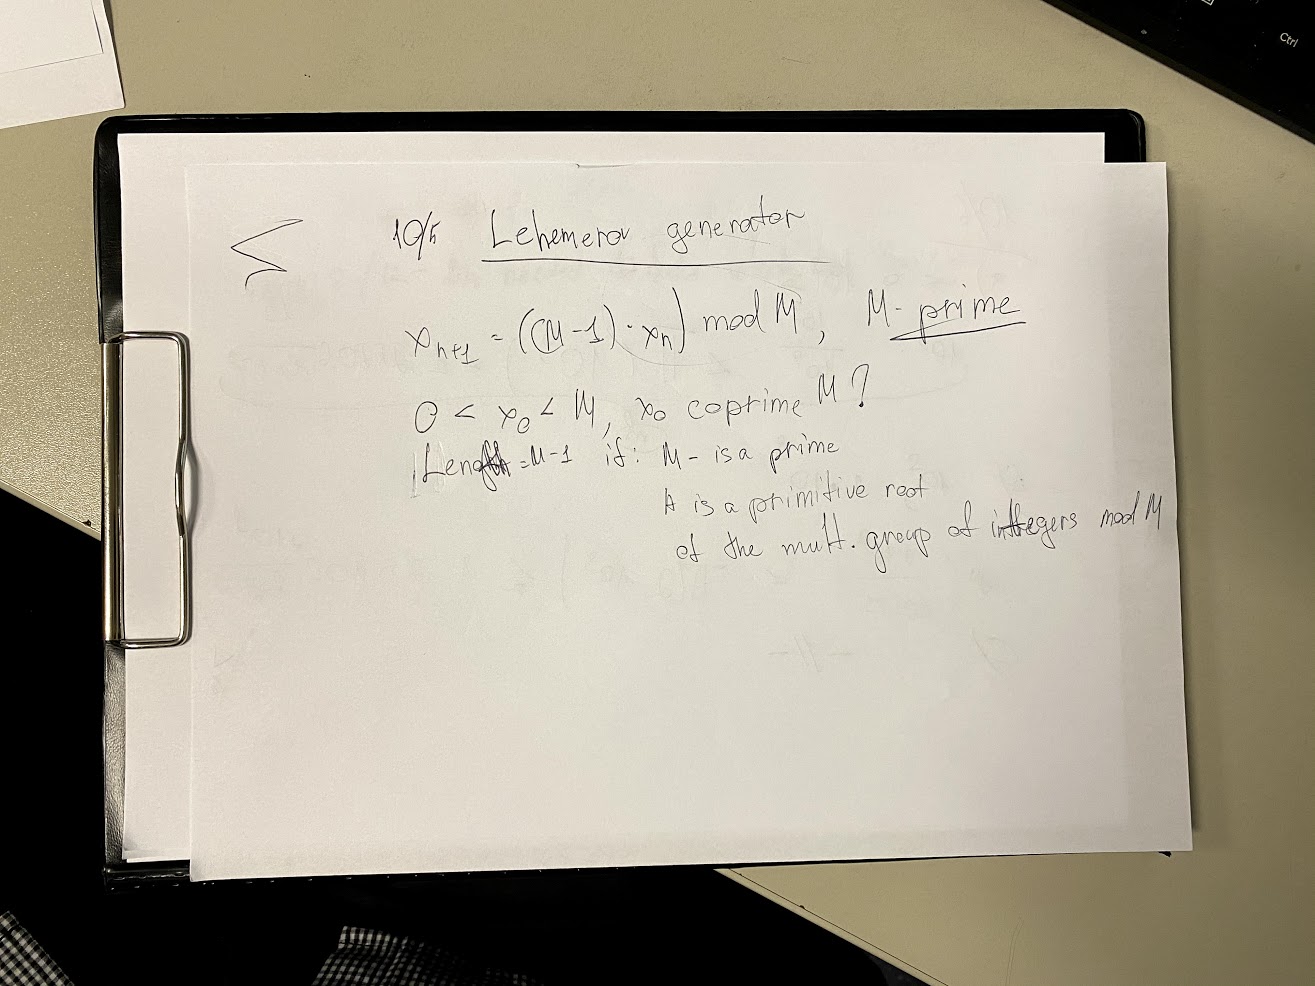 10/5 Lehemerov generator
x_{n+1} = ((M-1) · x_n) mod M, M - prime
0 < x_0 < M, x_0 coprime M?
Length = M-1 if: M - is a prime
A is a primitive root
of the mult. group of integers mod M
Ctrl